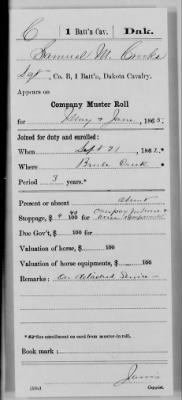 C | 1 Batt'n Cav. | Dak.
Samuel M. Crooks
Sgt, Co. B, 1 Batt'n, Dakota Cavalry.
Appears on
Company Muster Roll
for May & June, 1863.
Joined for duty and enrolled:
When Sept 21, 1862.*
Where Brule Creek
Period 3 years.*
Present or absent absent
Stoppage, $ 100
Due Gov't, $ 100 for
Valuation of horse, $ 100
Valuation of horse equipments, $ 100
Remarks: On Detached Service
*See enrollment on card from muster-in roll.
Book mark:
Jarvis
Copyist.